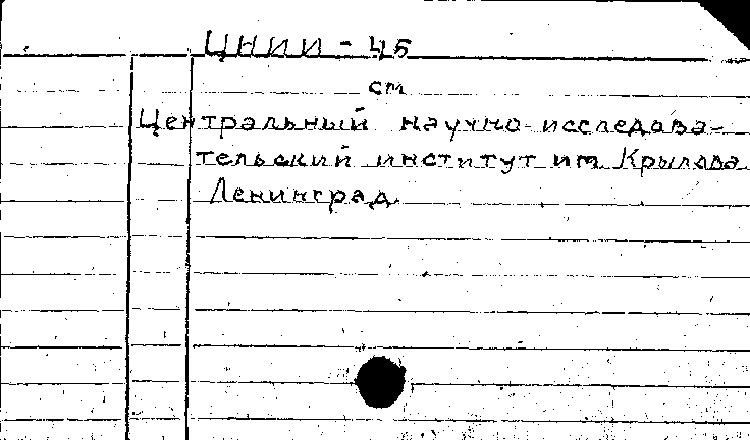 ЦНИИ - 45
ст
Центральный научно-исследова-
тельский институт им Крылова
Ленинград.